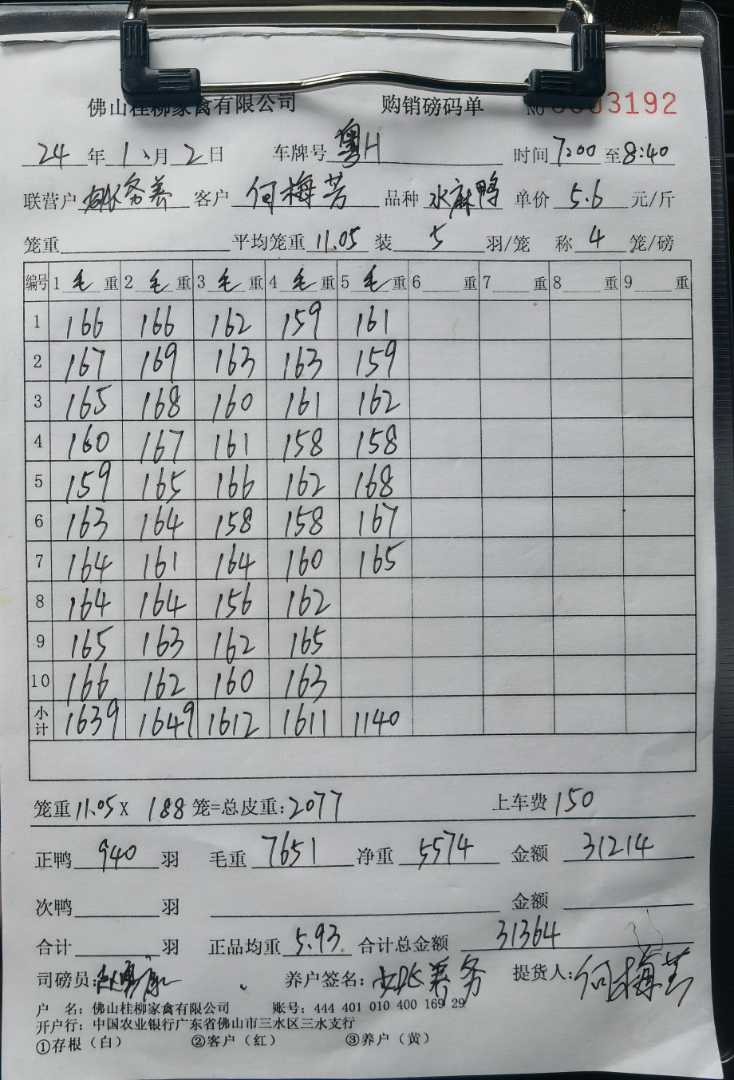 佛山桂柳家禽有限公司 购销磅码单 No 3192
24 年 1 月 2 日 车牌号 粤H 时间 7:00 至 8:40
联营户 务养 客户 何梅芳 品种 水麻鸭 单价 5.6 元/斤
笼重 平均笼重 11.05 装 5 羽/笼 称 4 笼/磅
编号 1 毛 重 2 毛 重 3 毛 重 4 毛 重 5 毛 重 6 重 7 重 8 重 9 重
1 166 166 162 159 161
2 167 169 163 163 159
3 165 168 160 161 162
4 160 167 161 158 158
5 159 165 166 162 168
6 163 164 158 158 167
7 164 161 164 160 165
8 164 164 156 162
9 165 163 162 165
10 166 162 160 163
小计 1639 1649 1612 1611 1140
笼重 11.05 X 188 笼=总皮重: 2077 上车费 150
正鸭 940 羽 毛重 7651 净重 5574 金额 31214
次鸭 羽 金额
合计 羽 正品均重 5.93 合计总金额 31364
司磅员: 养户签名: 养务 提货人: 何梅芳
户 名: 佛山桂柳家禽有限公司 账号: 444 401 010 400 169 29
开户行: 中国农业银行广东省佛山市三水区三水支行
①存根(白) ②客户(红) ③养户(黄)